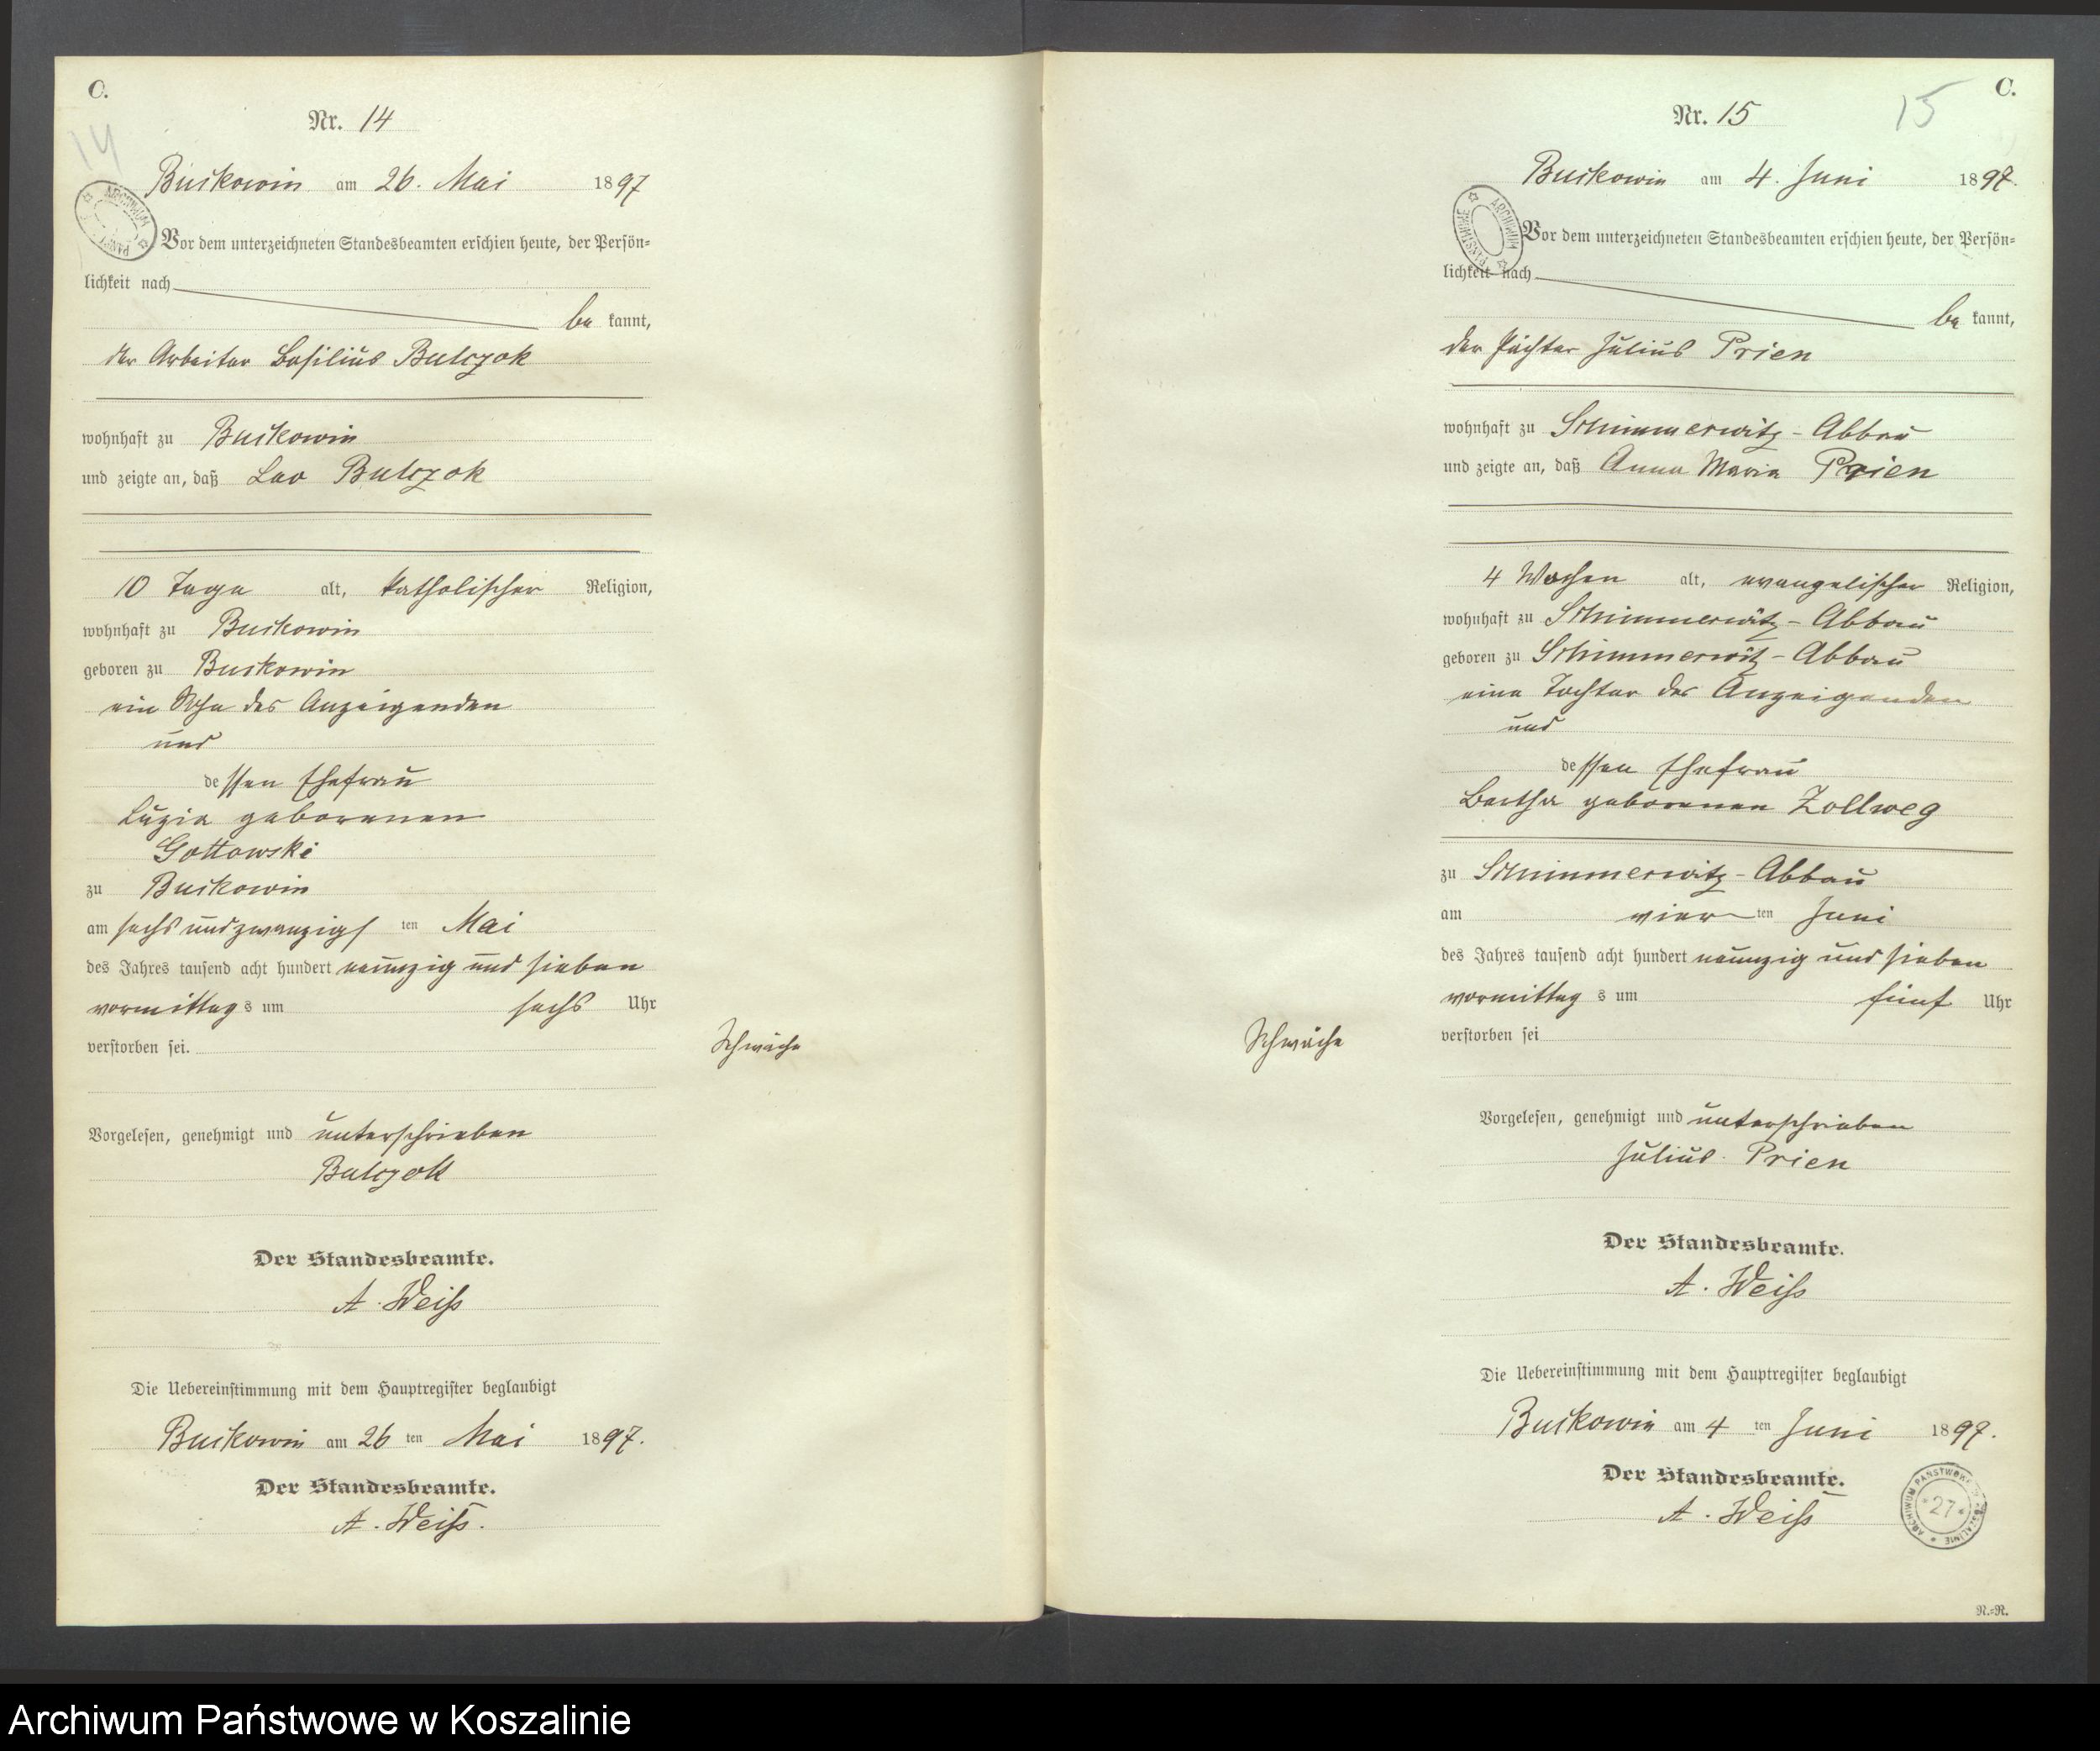 C.
Nr. 14
14
Buckowin am 26. Mai 1897
Vor dem unterzeichneten Standesbeamten erschien heute, der Persön=
lichkeit nach
be kannt,
der Arbeiter Basilius Bulczok
wohnhaft zu Buckowin
und zeigte an, daß Leo Bulczok
10 Tage alt, katholischer Religion,
wohnhaft zu Buckowin
geboren zu Buckowin
ein Sohn des Anzeigenden
und
dessen Ehefrau
Luzia geborenen
Gottowski
zu Buckowin
am sechs und zwanzigs ten Mai
des Jahres tausend acht hundert neunzig und sieben
vormittag s um sechs Uhr
verstorben sei.
Schwäche
Vorgelesen, genehmigt und unterschrieben
Bulczok
Der Standesbeamte.
A. Weiß
Die Uebereinstimmung mit dem Hauptregister beglaubigt
Buckowin am 26 ten Mai 1897.
Der Standesbeamte.
A. Weiß.
C.
Nr. 15
15
Buckowin am 4. Juni 1897.
ARCHIWUM PAŃSTWOWE
Vor dem unterzeichneten Standesbeamten erschien heute, der Persön=
lichkeit nach
be kannt,
der Pächter Julius Prien
wohnhaft zu Schimmerwitz-Abbau
und zeigte an, daß Anna Maria Prien
4 Wochen alt, evangelischer Religion,
wohnhaft zu Schimmerwitz-Abbau
geboren zu Schimmerwitz-Abbau
eine Tochter des Anzeigenden
und
dessen Ehefrau
Bertha geborenen Zollweg
zu Schimmerwitz-Abbau
am vier ten Juni
des Jahres tausend acht hundert neunzig und sieben
vormittag s um fünf Uhr
verstorben sei
Schwäche
Vorgelesen, genehmigt und unterschrieben
Julius Prien
Der Standesbeamte.
A. Weiß
Die Uebereinstimmung mit dem Hauptregister beglaubigt
Buckowin am 4 ten Juni 1897.
Der Standesbeamte.
A. Weiß
27
N.=N.
Archiwum Państwowe w Koszalinie